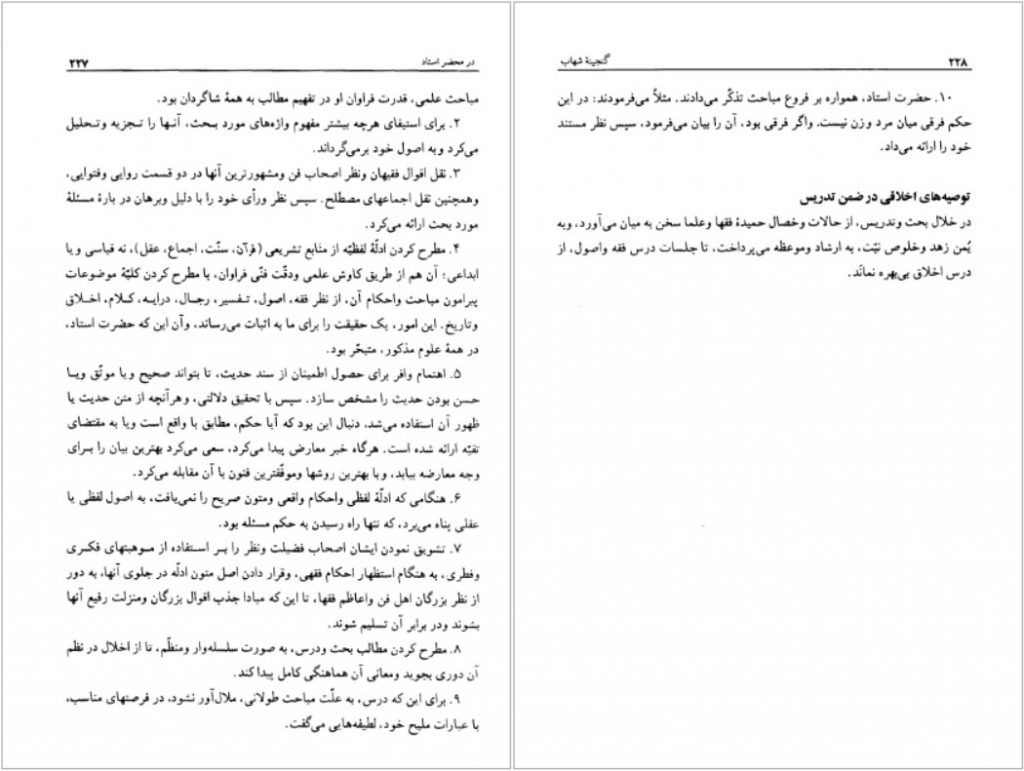 در محضر استاد ۲۲۷
مباحث علمی، قدرت فراوان او در تفهیم مطالب به همهٔ شاگردان بود.
۲. برای استیفای هرچه بیشتر مفهوم واژه‌های مورد بحث، آنها را تجزیه وتحلیل
می‌کرد وبه اصول خود برمی‌گرداند.
۳. نقل اقوال فقیهان ونظر اصحاب فن ومشهورترین آنها در دو قسمت روایی وفتوایی،
وهمچنین نقل اجماعهای مصطلح. سپس نظر ورأی خود را با دلیل وبرهان در بارهٔ مسئلهٔ
مورد بحث ارائه می‌کرد.
۴. مطرح کردن ادلّهٔ لفظیّه از منابع تشریعی (قرآن، سنّت، اجماع، عقل)، نه قیاسی ویا
ابداعی؛ آن هم از طریق کاوش علمی ودقّت فنّی فراوان، با مطرح کردن کلیّهٔ موضوعات
پیرامون مباحث واحکام آن، از نظر فقه، اصول، تفسیر، رجال، درایه، کلام، اخلاق
وتاریخ. این امور، یک حقیقت را برای ما به اثبات می‌رساند، وآن این که حضرت استاد،
در همهٔ علوم مذکور، متبحّر بود.
۵. اهتمام وافر برای حصول اطمینان از سند حدیث، تا بتواند صحیح ویا موثّق ویا
حسن بودن حدیث را مشخص سازد. سپس با تحقیق دلالتی، وهرآنچه از متن حدیث یا
ظهور آن استفاده می‌شد، دنبال این بود که آیا حکم، مطابق با واقع است ویا به مقتضای
تقیّه ارائه شده است. هرگاه خبر معارض پیدا می‌کرد، سعی می‌کرد بهترین بیان را برای
وجه معارضه بیابد، وبا بهترین روشها وموفّقترین فنون با آن مقابله می‌کرد.
۶. هنگامی که ادلّهٔ لفظی واحکام واقعی ومتون صریح را نمی‌یافت، به اصول لفظی یا
عقلی پناه می‌برد، که تنها راه رسیدن به حکم مسئله بود.
۷. تشویق نمودن ایشان اصحاب فضیلت ونظر را بر استفاده از موهبتهای فکری
وفطری، به هنگام استظهار احکام فقهی، وقرار دادن اصل متون ادلّه در جلوی آنها، به دور
از نظر بزرگان اهل فن واعاظم فقها، تا این که مبادا جذب اقوال بزرگان ومنزلت رفیع آنها
بشوند ودر برابر آن تسلیم شوند.
۸. مطرح کردن مطالب بحث ودرس، به صورت سلسله‌وار ومنظّم، تا از اخلال در نظم
آن دوری بجوید ومعانی آن هماهنگی کامل پیدا کند.
۹. برای این که درس، به علّت مباحث طولانی، ملال‌آور نشود، در فرصتهای مناسب،
با عبارات ملیح خود، لطیفه‌هایی می‌گفت.
۲۲۸ گنجینهٔ شهاب
۱۰. حضرت استاد، همواره بر فروع مباحث تذکّر می‌دادند. مثلاً می‌فرمودند: در این
حکم فرقی میان مرد وزن نیست. واگر فرقی بود، آن را بیان می‌فرمود، سپس نظر مستند
خود را ارائه می‌داد.
توصیه‌های اخلاقی در ضمن تدریس
در خلال بحث وتدریس، از حالات وخصال حمیدهٔ فقها وعلما سخن به میان می‌آورد، وبه
یُمن زهد وخلوص نیّت، به ارشاد وموعظه می‌پرداخت، تا جلسات درس فقه واصول، از
درس اخلاق بی‌بهره نمانَد.